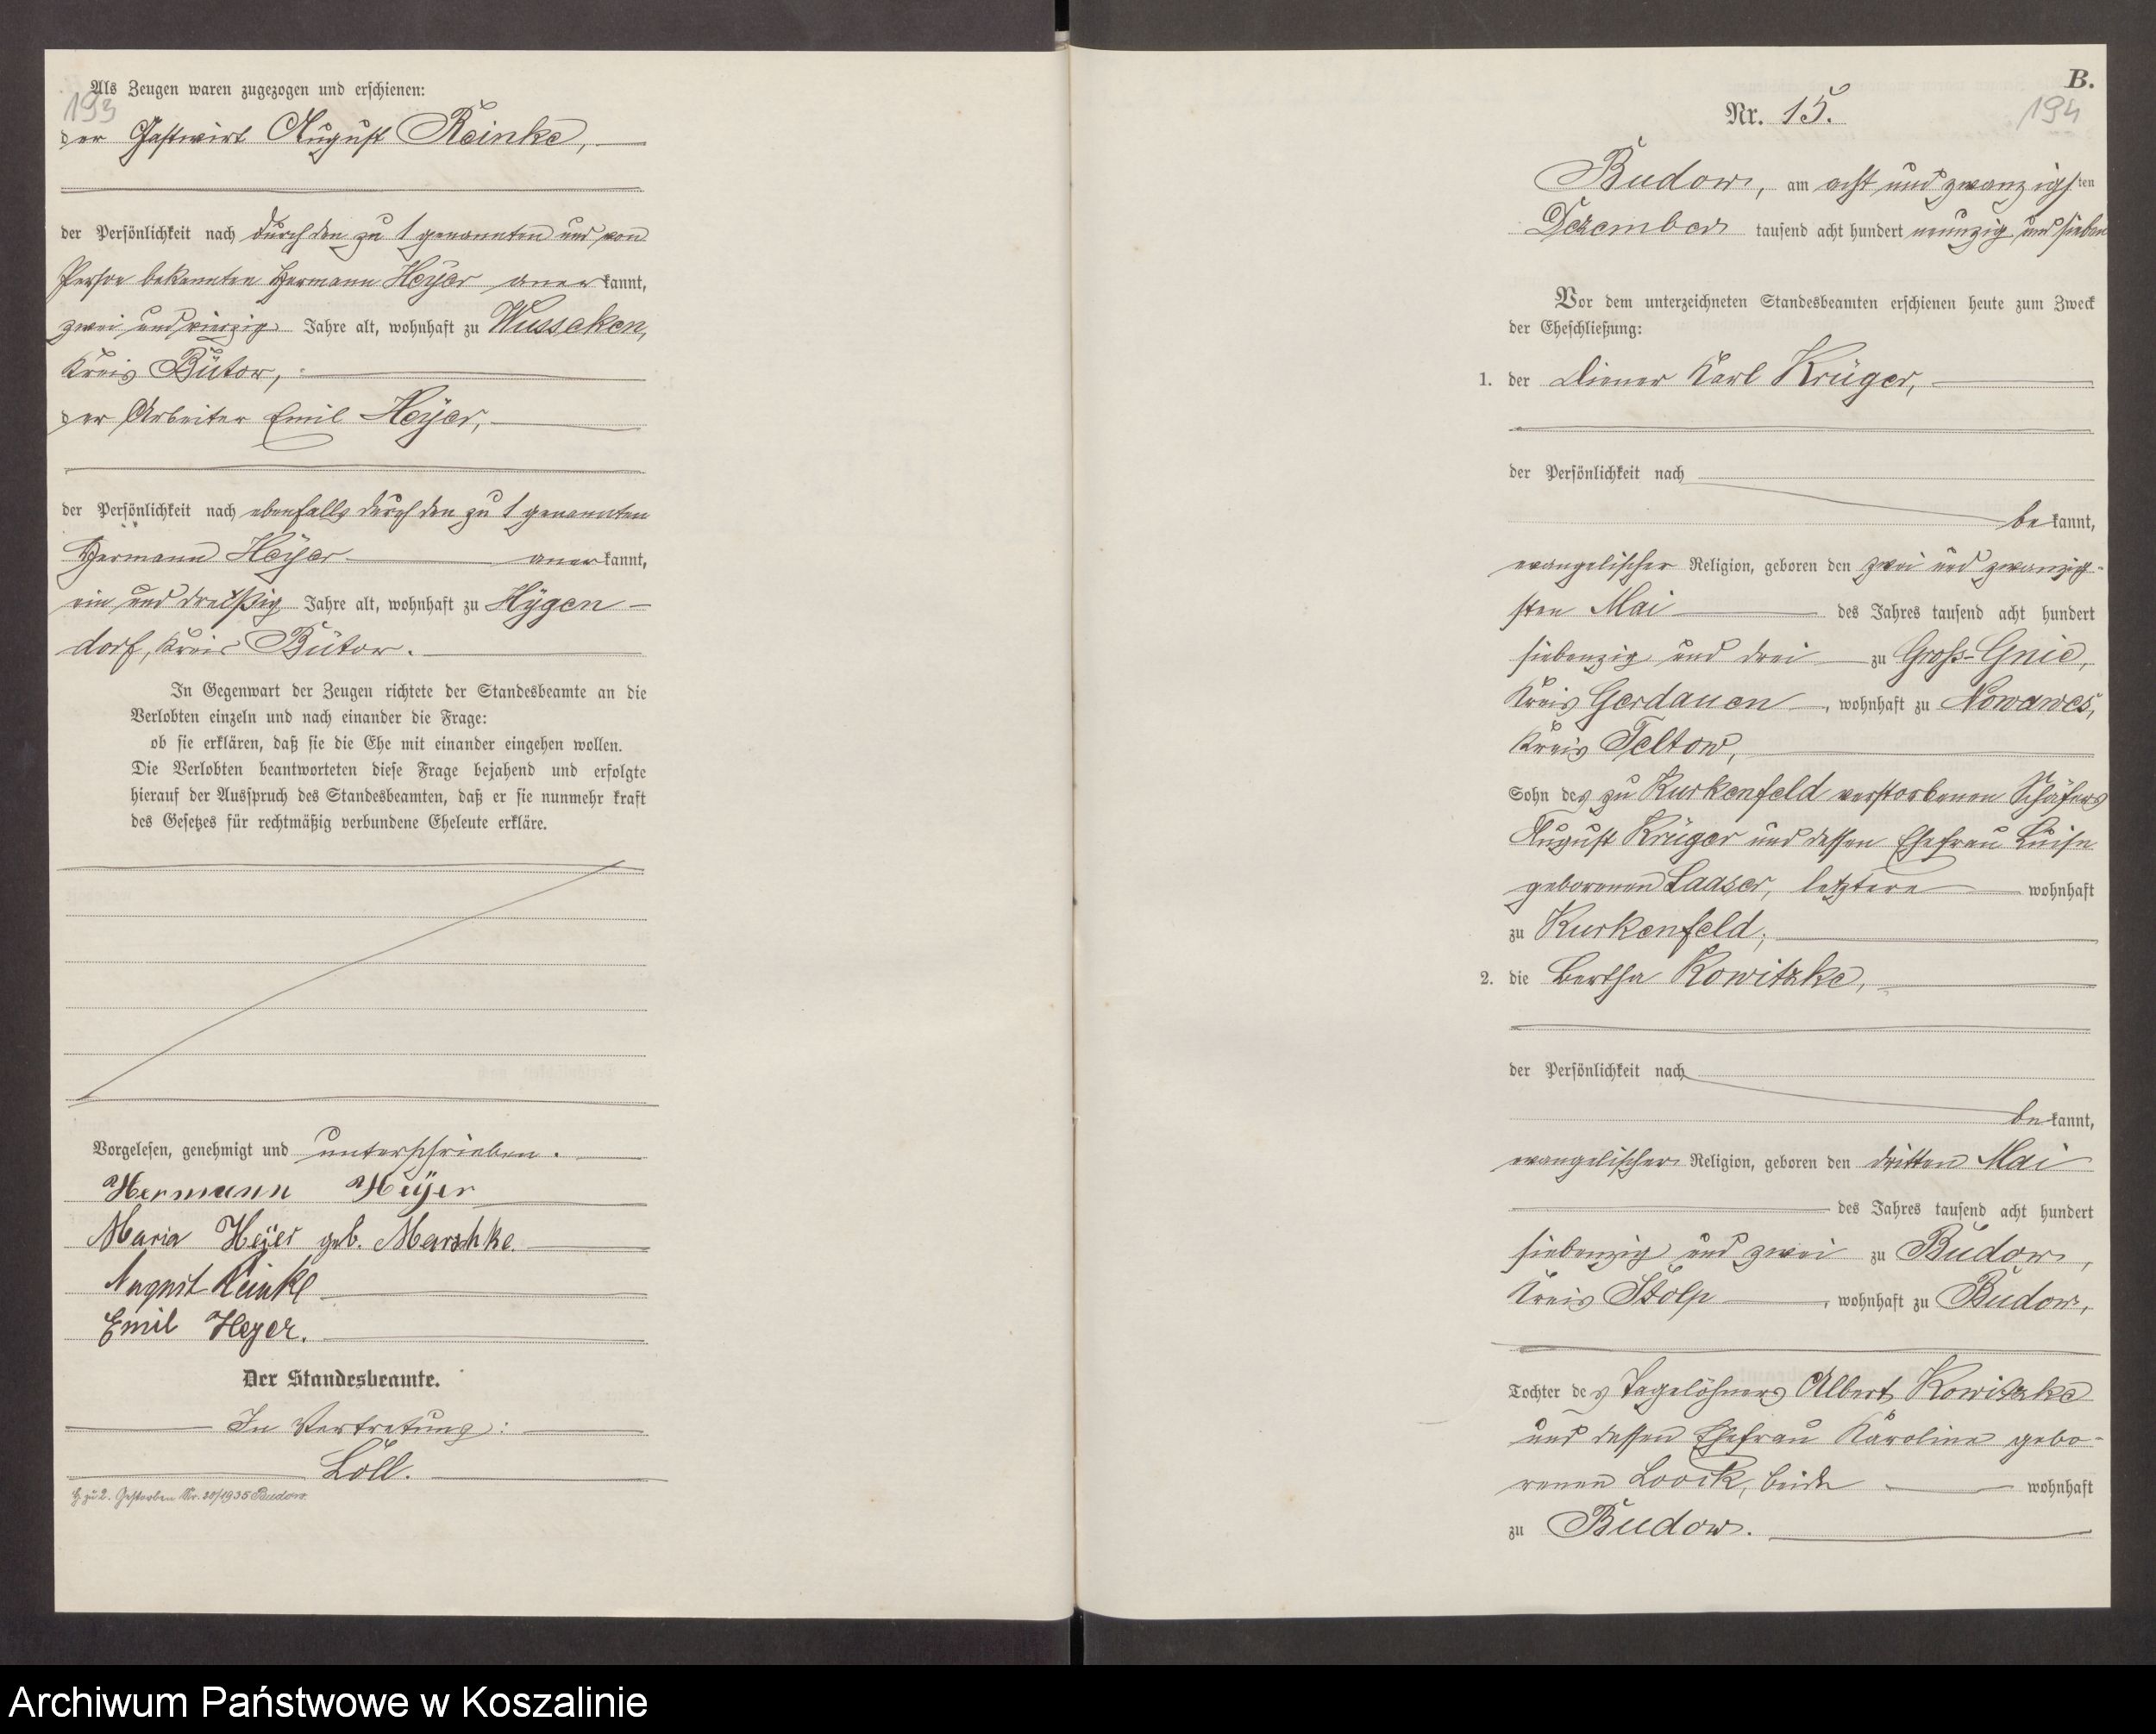 Als Zeugen waren zugezogen und erschienen:
193
der Gastwirt August Reinke,
der Persönlichkeit nach durch den zu 1 genannten und von
Person bekannten Hermann Heÿer anerkannt,
zwei und vierzig Jahre alt, wohnhaft zu Wusseken,
Kreis Bütow,
der Arbeiter Emil Heÿer,
der Persönlichkeit nach ebenfalls durch den zu 1 genannten
Hermann Heÿer anerkannt,
ein und dreißig Jahre alt, wohnhaft zu Hÿgen-
dorf, Kreis Bütow.
In Gegenwart der Zeugen richtete der Standesbeamte an die
Verlobten einzeln und nach einander die Frage:
ob sie erklären, daß sie die Ehe mit einander eingehen wollen.
Die Verlobten beantworteten diese Frage bejahend und erfolgte
hierauf der Ausspruch des Standesbeamten, daß er sie nunmehr kraft
des Gesetzes für rechtmäßig verbundene Eheleute erkläre.
Vorgelesen, genehmigt und unterschrieben.
Hermann Heÿer
Maria Heÿer geb. Marschke.
August Reinke
Emil Heyer.
Der Standesbeamte.
In Vertretung:
Löll.
H. zu 2. Gestorben Nr. 20/1935 Budow.
B.
194
Nr. 15.
Budow, am acht und zwanzigsten
Dezember tausend acht hundert neunzig und sieben
Vor dem unterzeichneten Standesbeamten erschienen heute zum Zweck
der Eheschließung:
1. der Diener Karl Krüger,
der Persönlichkeit nach
bekannt,
evangelischer Religion, geboren den zwei und zwanzig-
sten Mai des Jahres tausend acht hundert
siebenzig und drei zu Groß-Gnie,
Kreis Gerdauen, wohnhaft zu Nowawes,
Kreis Teltow,
Sohn des zu Kurkenfeld verstorbenen Schäfers
August Krüger und dessen Ehefrau Luise
geborenen Laaser, letztere wohnhaft
zu Kurkenfeld;
2. die Bertha Kowitzke,
der Persönlichkeit nach
bekannt,
evangelischer Religion, geboren den dritten Mai
des Jahres tausend acht hundert
siebenzig und zwei zu Budow,
Kreis Stolp, wohnhaft zu Budow,
Tochter des Tagelöhners Albert Kowitzke
und dessen Ehefrau Karoline gebo-
renen Loock, beide wohnhaft
zu Budow.
Archiwum Państwowe w Koszalinie